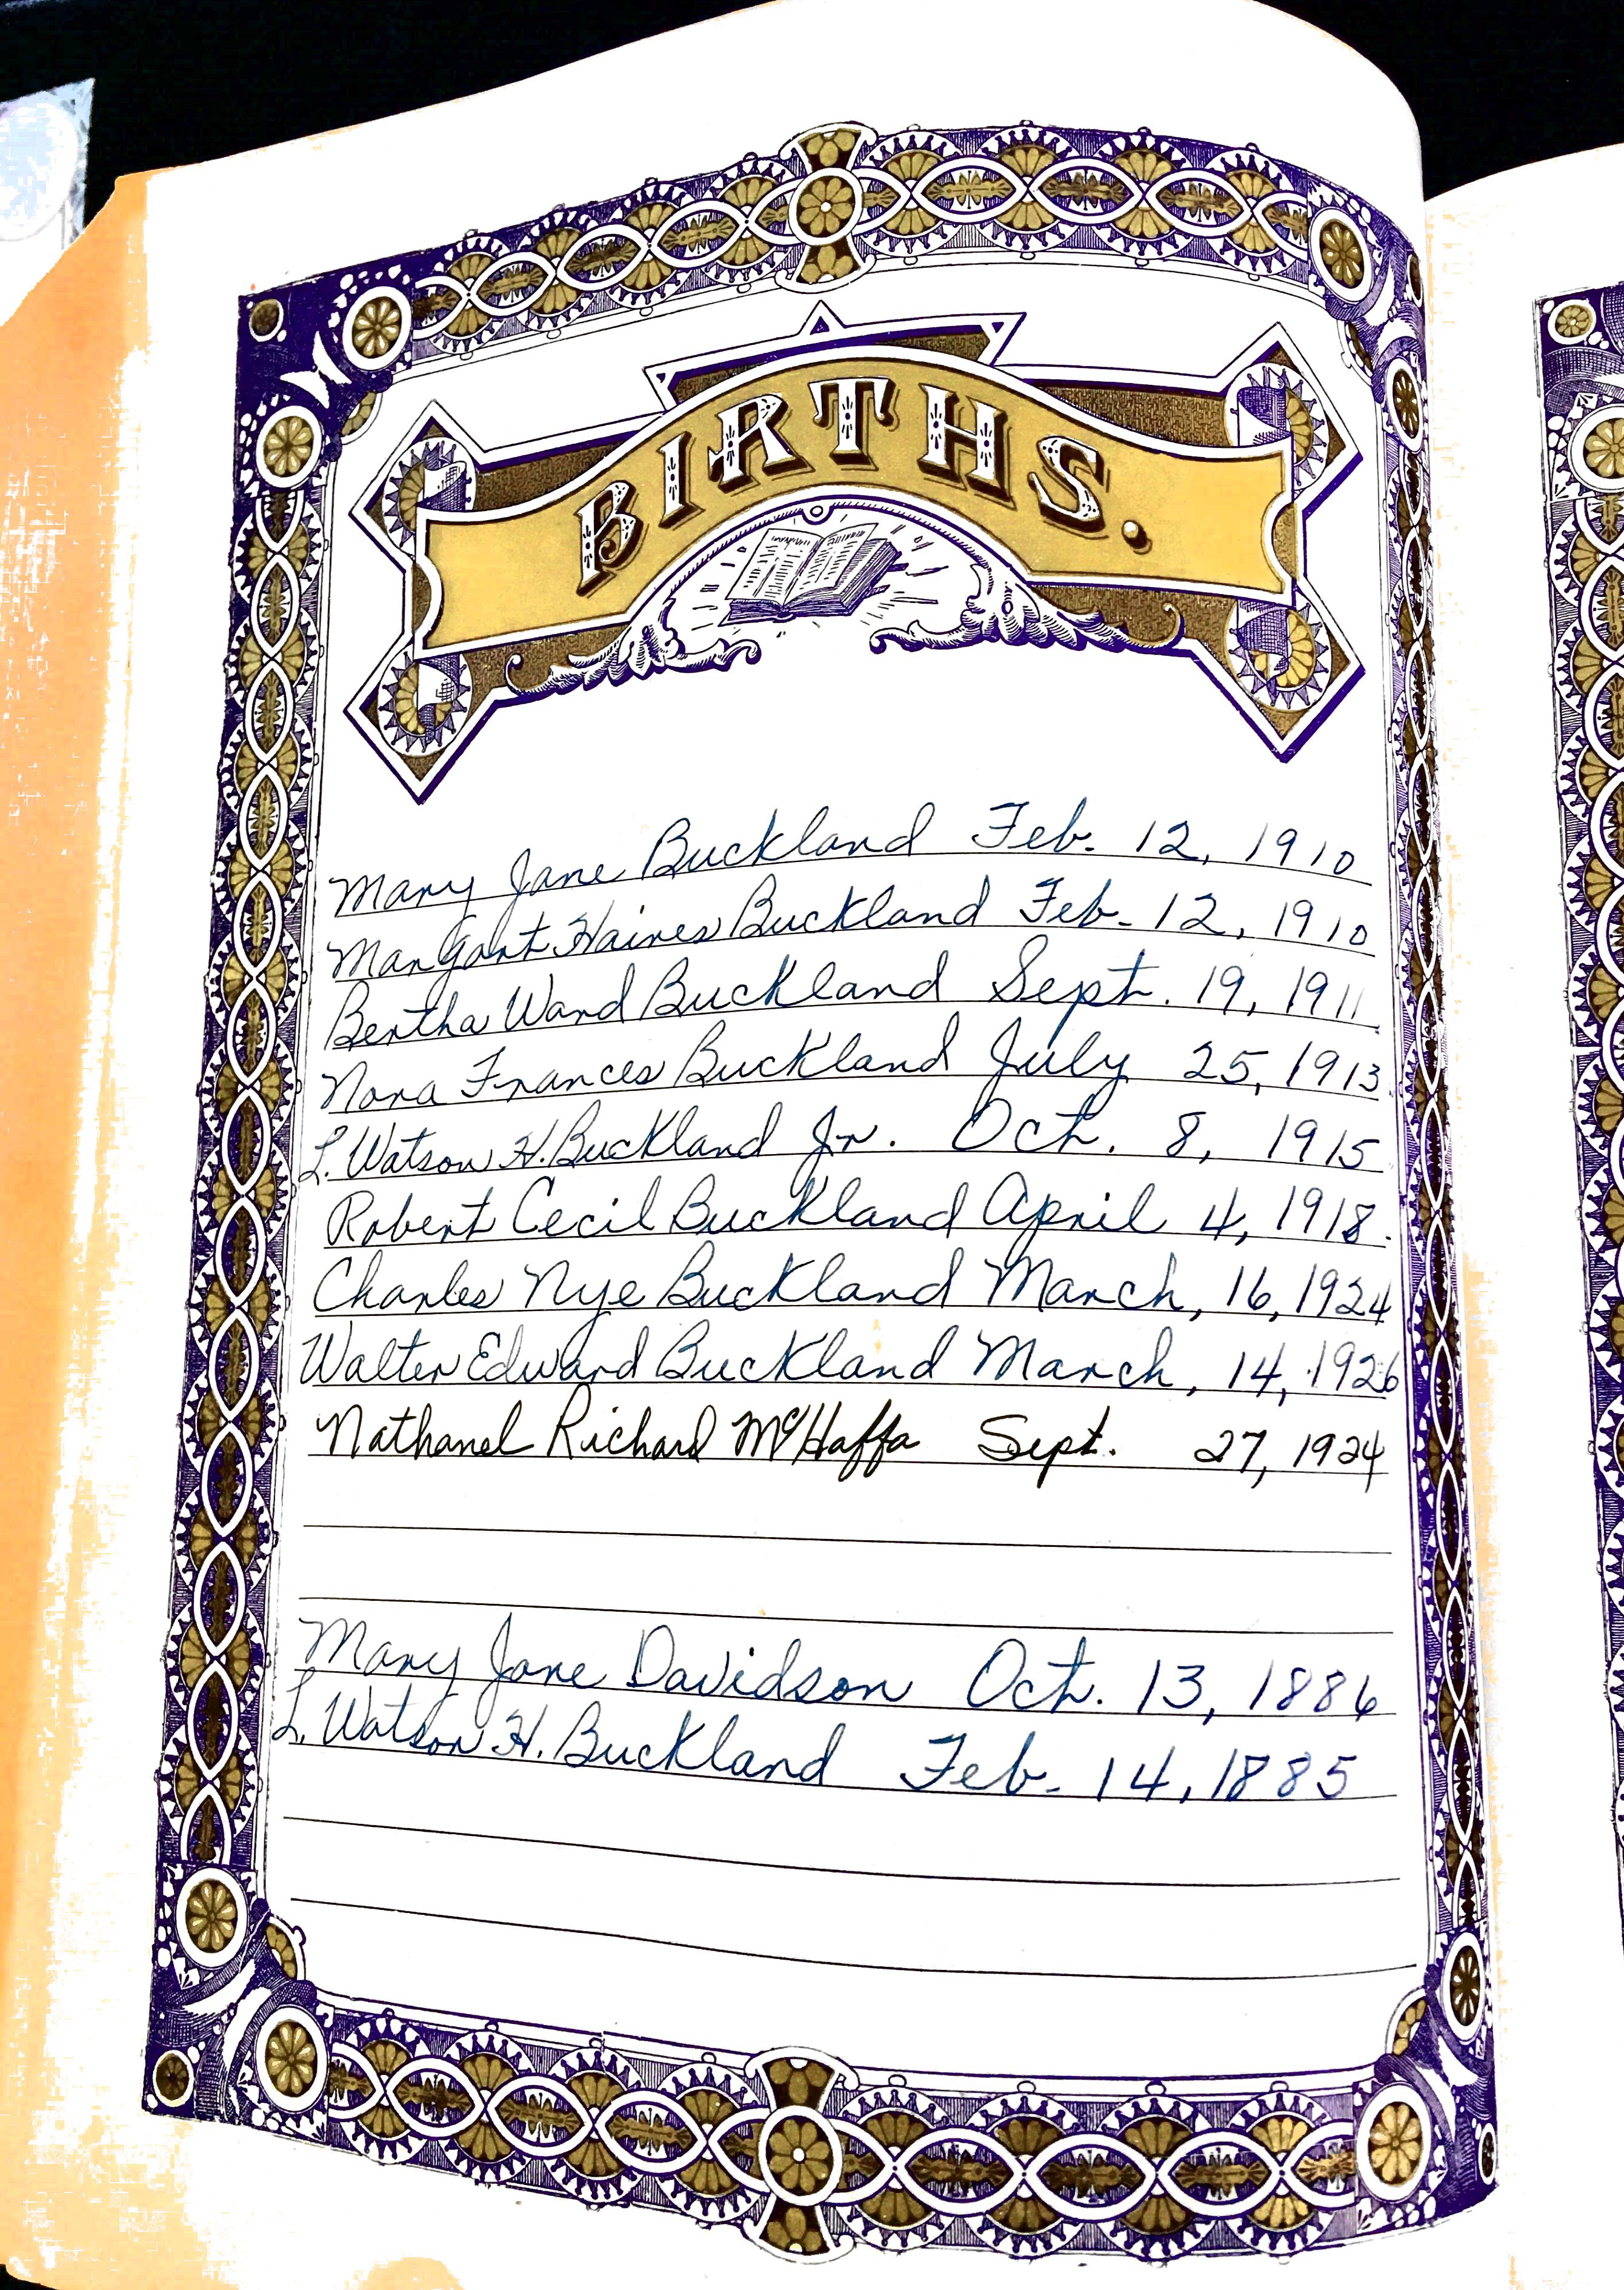 BIRTHS.
Mary Jane Buckland Feb. 12, 1910
Margart Haines Buckland Feb. 12, 1910
Bertha Ward Buckland Sept. 19, 1911
Nora Frances Buckland July 25, 1913
L. Watson H. Buckland Jr. Oct. 8, 1915
Robert Cecil Buckland April 4, 1918.
Charles Nye Buckland March, 16, 1924
Walter Edward Buckland March, 14, 1926
Nathanel Richard McHaffa Sept. 27, 1924
Mary Jane Davidson Oct. 13, 1886
L. Watson H. Buckland Feb. 14, 1885